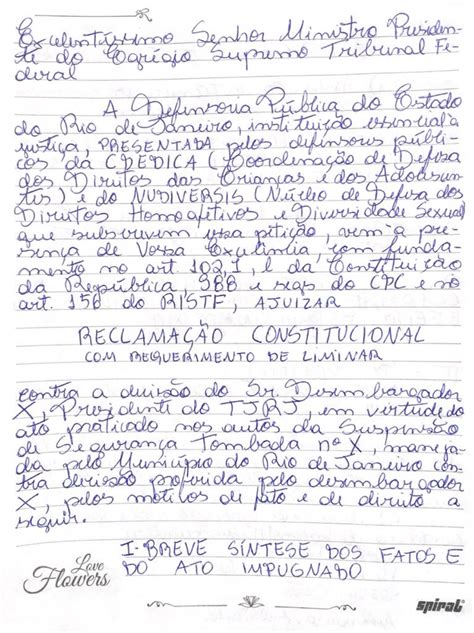 Excelentíssimo Senhor Ministro Presiden-
te do Egrégio Supremo Tribunal Fe-
deral
A Defensoria Pública do Estado
do Rio de Janeiro, instituição essencial a
justiça, PRESENTADA pelos defensores públi-
cos da CDEDICA (Coordenação de Defesa
dos Direitos das Crianças e dos Adolescen-
tes) e do NUDIVERSIS (Núcleo de Defesa dos
Direitos Homoafetivos e Diversidade Sexual
que subscrevem essa petição, vem a pre-
sença de Vossa Excelência, com funda-
mento no art 102, I, l da Constituição
da República, 988 e segs do CPC e no
art. 156 do RISTF, AJUIZAR
RECLAMAÇÃO CONSTITUCIONAL
COM REQUERIMENTO DE LIMINAR
contra a decisão do Sr. Desembargador
X, Presidente do TJRJ, em virtude do
ato praticado nos autos da Suspensão
de Segurança Tombada nº X, maneja-
da pelo Município do Rio de Janeiro con-
tra decisão proferida pelo desembargador
X, pelos motivos de fato e de direito a
seguir.
I- BREVE SÍNTESE DOS FATOS E
DO ATO IMPUGNADO
Love
Flowers
spiral